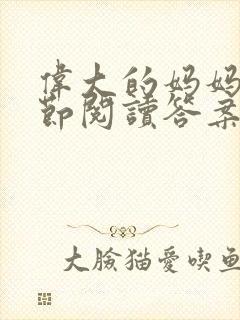 偉大的妈妈
節閱讀答案
大臉猫愛喫鱼